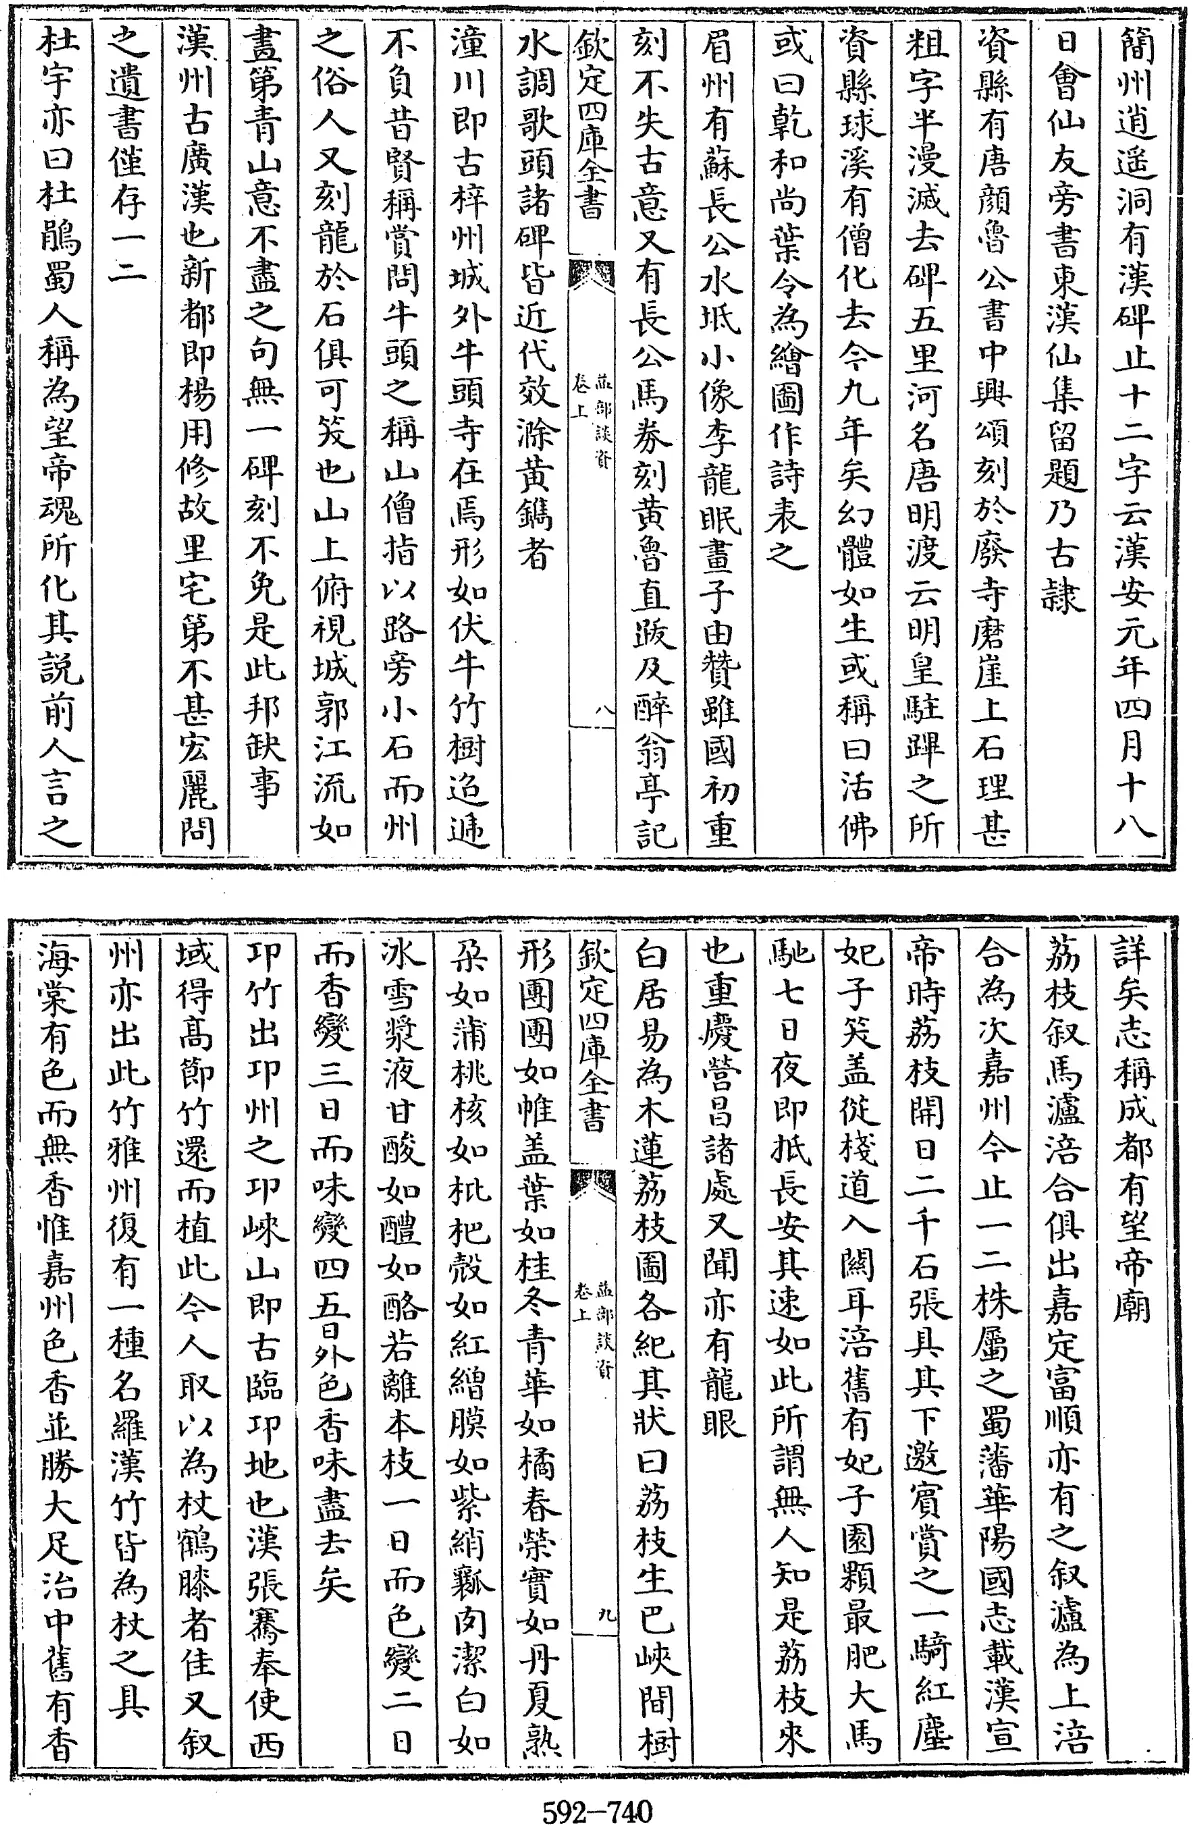 簡州逍遥洞有漢碑止十二字云漢安元年四月十八
日會仙友旁書東漢仙集留題乃古隷
資縣有唐顔魯公書中興頌刻於廢寺磨崖上石理甚
粗字半漫滅去碑五里河名唐明渡云明皇駐蹕之所
資縣球溪有僧化去今九年矣幻體如生或稱曰活佛
或曰乹和尚葉令為繪圖作詩表之
眉州有蘇長公水坻小像李龍眠畫子由贊雖國初重
刻不失古意又有長公馬券刻黄魯直䟦及醉翁亭記
欽定四庫全書
益部談資
卷上
八
水調歌頭諸碑皆近代效滁黄鐫者
潼川即古梓州城外牛頭寺在焉形如伏牛竹樹迢遞
不負昔賢稱賞問牛頭之稱山僧指以路旁小石而州
之俗人又刻龍於石俱可笑也山上俯視城郭江流如
畫第青山意不盡之句無一碑刻不免是此邦缺事
漢州古廣漢也新都即楊用修故里宅第不甚宏麗問
之遺書僅存一二
杜宇亦曰杜鵑蜀人稱為望帝魂所化其説前人言之
詳矣志稱成都有望帝廟
荔枝叙馬瀘涪合俱出嘉定富順亦有之叙瀘為上涪
合為次嘉州今止一二株屬之蜀藩華陽國志載漢宣
帝時荔枝開日二千石張具其下邀賓賞之一騎紅塵
妃子笑盖從棧道入關耳涪舊有妃子園顆最肥大馬
馳七日夜即抵長安其速如此所謂無人知是荔枝來
也重慶營昌諸處又聞亦有龍眼
白居易為木蓮荔枝圖各紀其狀曰荔枝生巴峽間樹
欽定四庫全書
益部談資
卷上
九
形團團如帷盖葉如桂冬青華如橘春榮實如丹夏熟
朶如蒲桃核如枇杷殻如紅繒膜如紫綃瓤肉潔白如
冰雪漿液甘酸如醴如酪若離本枝一日而色變二日
而香變三日而味變四五日外色香味盡去矣
卭竹出卭州之卭崍山即古臨卭地也漢張騫奉使西
域得髙節竹還而植此今人取以為杖鶴膝者佳又叙
州亦出此竹雅州復有一種名羅漢竹皆為杖之具
海棠有色而無香惟嘉州色香並勝大足治中舊有香
592-740